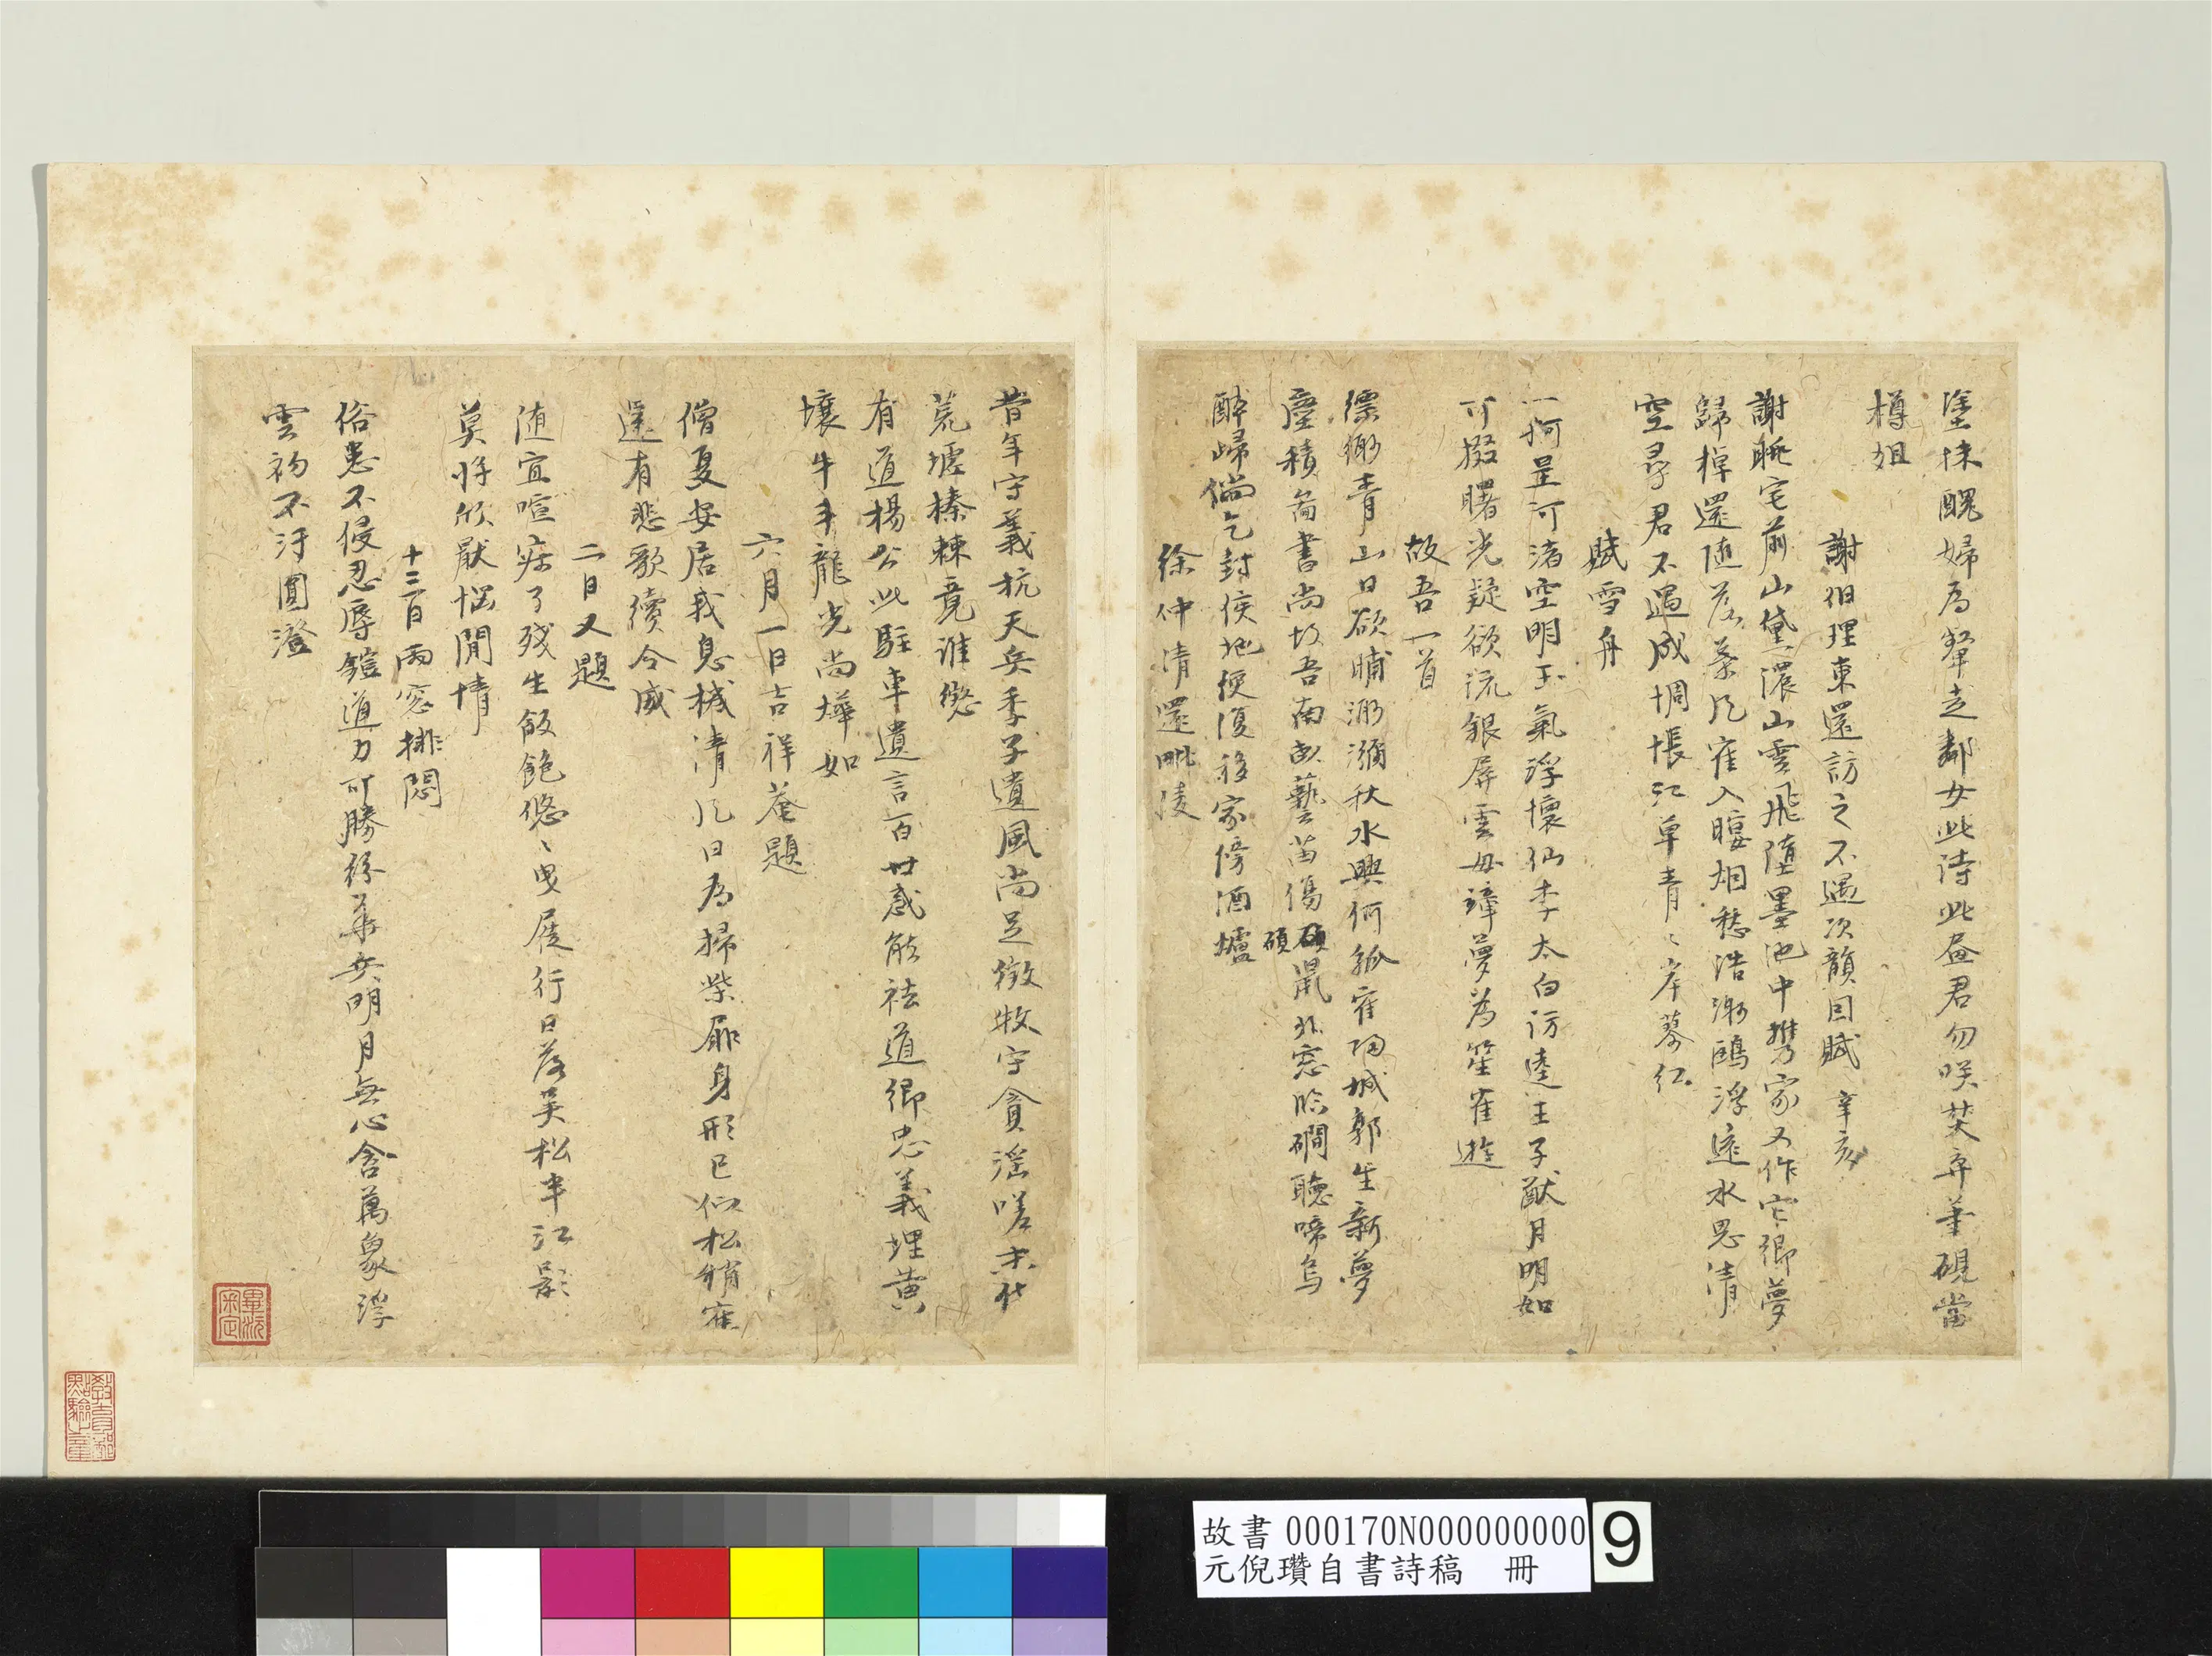 塗抹醜婦為顰走鄰女此詩此畫君勿咲焚弃筆硯當
樽俎
謝伯理東還訪之不遇次韻因賦 辛亥
謝眺宅前山黛濃山雲飛墮墨池中攜家又作它鄉夢
歸棹還隨落葉風寉入暝烟愁浩渺鷗浮遠水思清
空尋君不遇成惆悵江草青〻岸蓼紅
賦雪舟
一舸星河渚空明玉氣浮懷仙李太白訪逵王子猷月明如
可掇曙光疑欲流銀屏雲母障夢為笙寉遊
故吾一首
縹緲青山日欲晡瀰瀰秋水興何孤寉歸城郭生新夢
塵積圖書尚故吾南畝藝苗傷碩鼠北窓臨磵聽啼烏
碩
醉歸倘乞封侯地便復移家傍酒壚
徐仲清還毗陵
昔年守義抗天兵季子遺風尚足徵牧守貪淫嗟末代
荒墟榛棘竟誰懲
有道楊公此駐車遺言百世惑能袪道鄉忠義埋黃
壤牛斗龍光尚燁如
六月一日吉祥菴題
僧夏安居我息機清風日為掃柴扉身形已似松梢寉
還有悲歌續令威
二日又題
随宜喧寂了殘生飯飽悠〻曳屐行日落吴松半江影
莫將欣厭惱閒情
十三日雨窓排悶
俗患不侵忍辱鎧道力可勝紛華兵明月無心含萬象浮
雲初不汙圓澄
畢瀧審定
教育部點驗之章
故書 000170N000000000 9
元倪瓚自書詩稿 冊